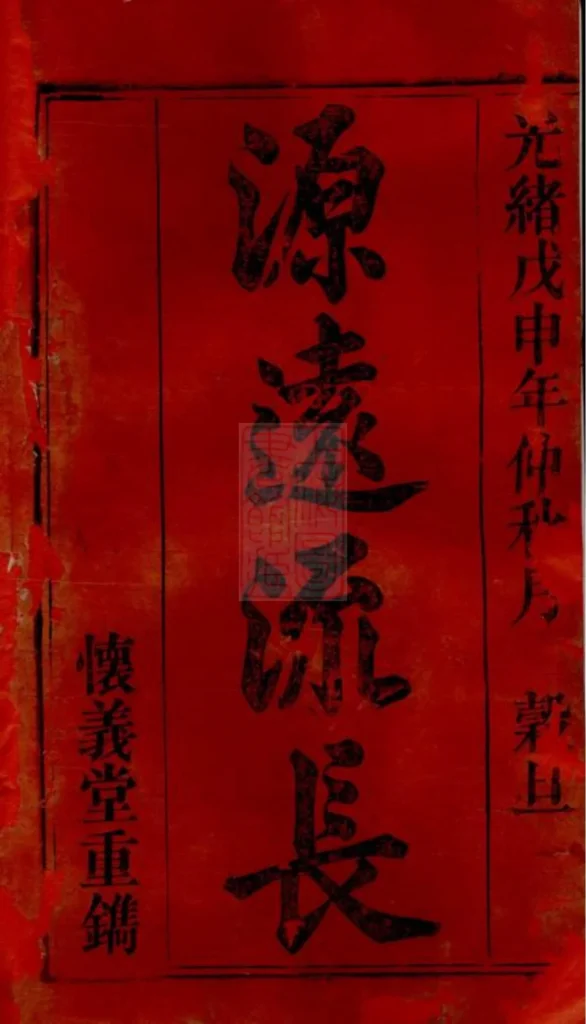 光緒戊申年仲秋月 穀旦
源遠流長
懷義堂重鐫